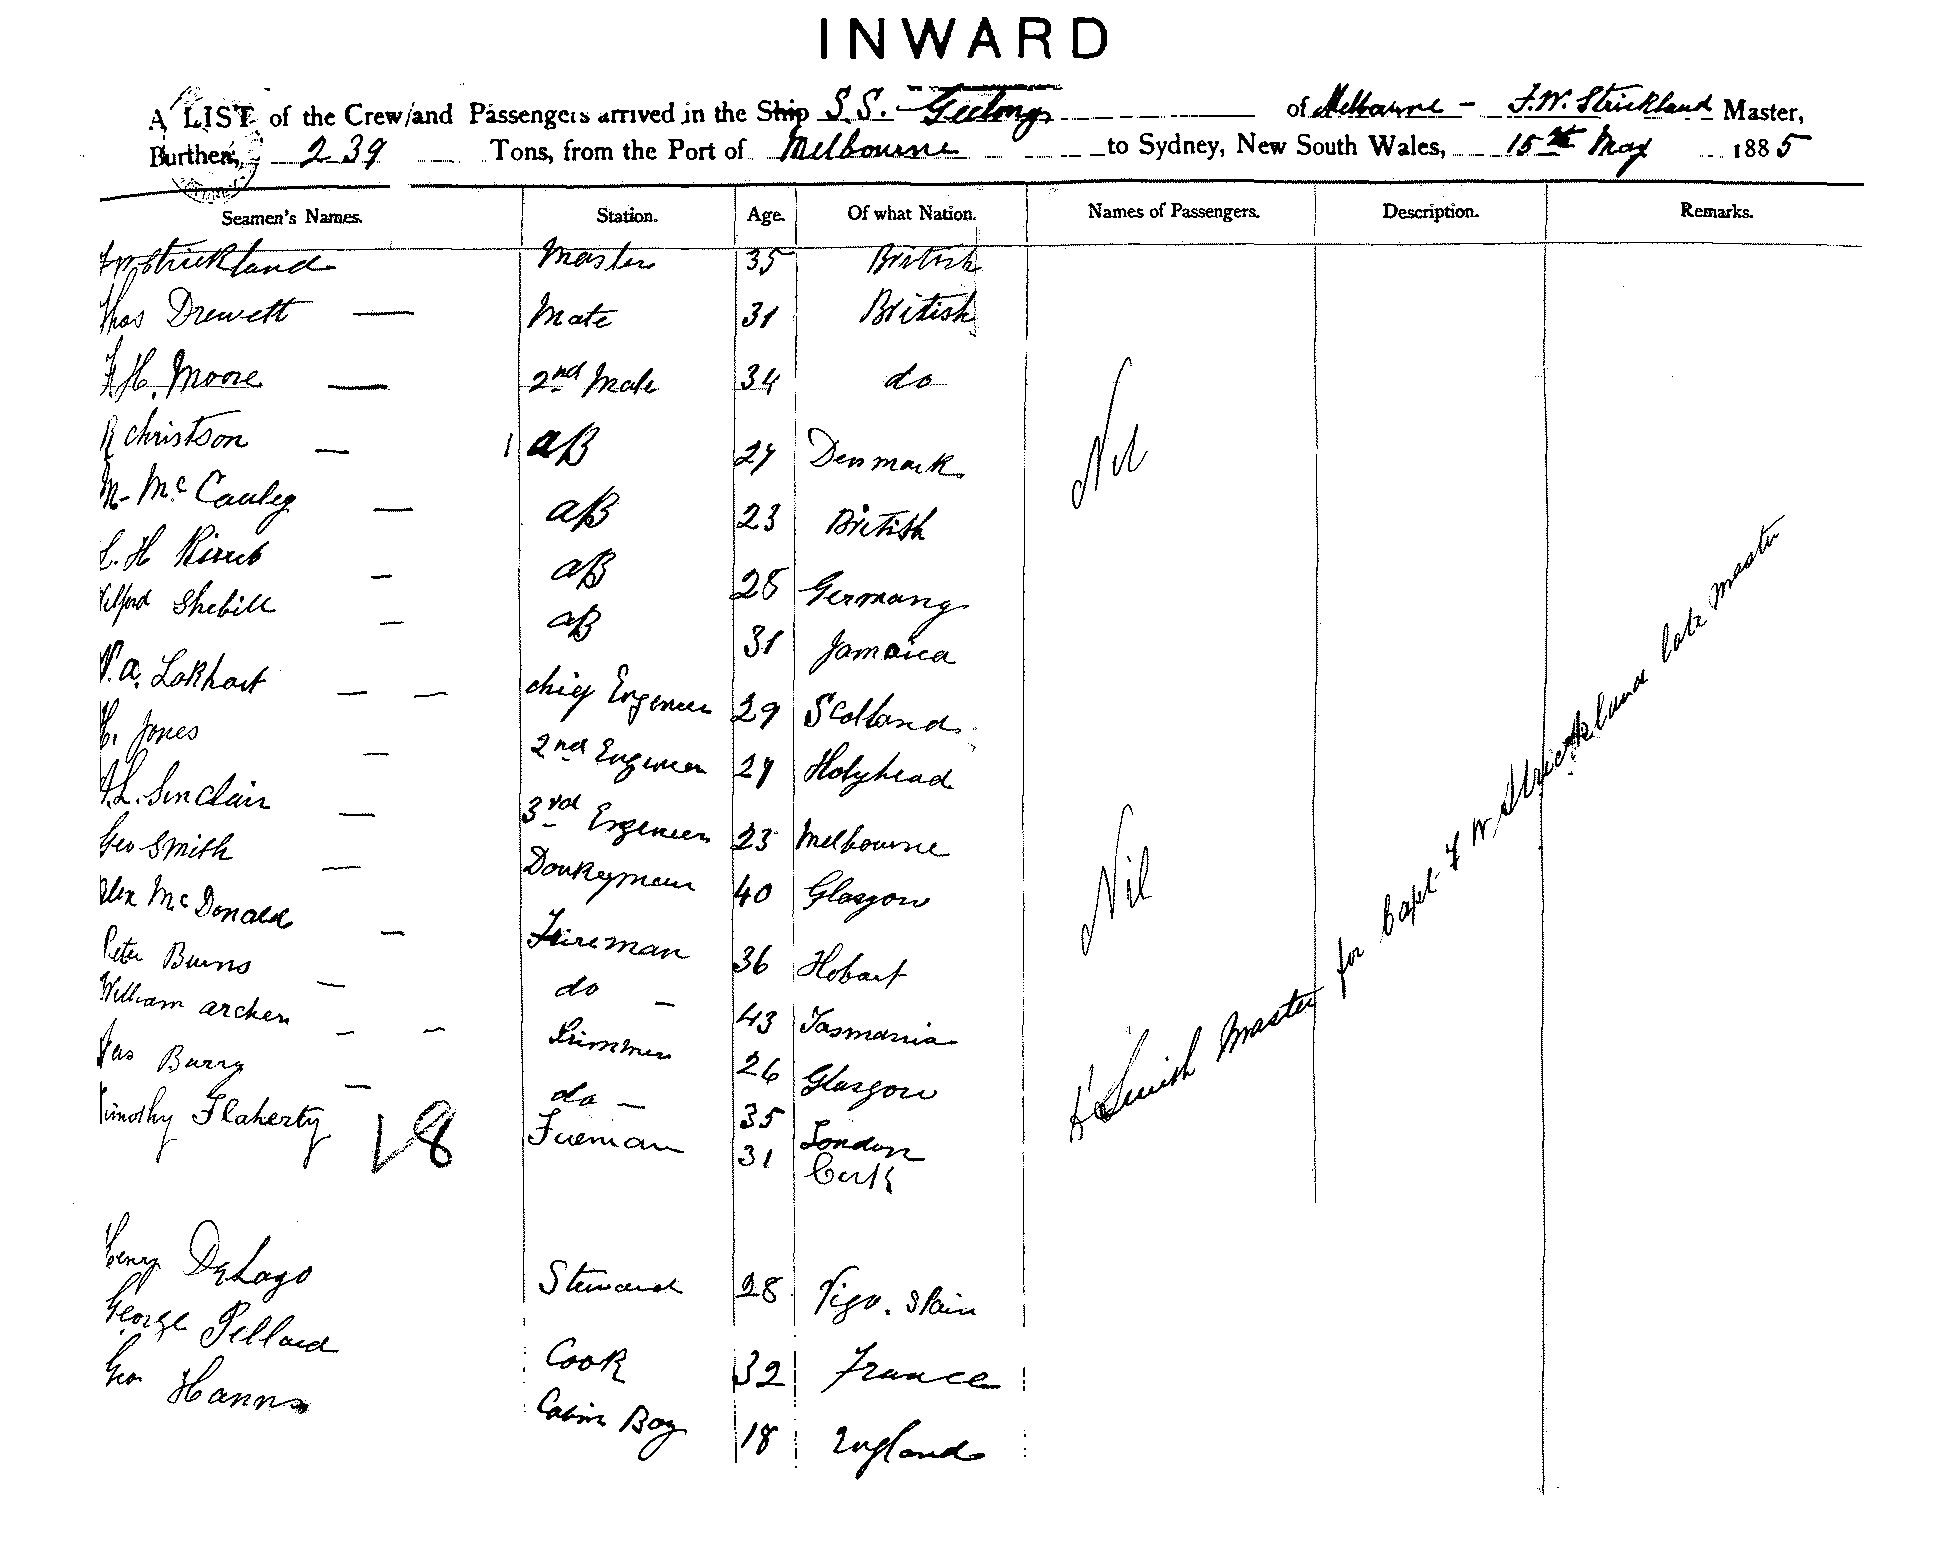 INWARD
A LIST of the Crew and Passengers arrived in the Ship S.S. Geelong of Melbourne - F.W. Strickland Master,
Burthen, 239 Tons, from the Port of Melbourne to Sydney, New South Wales, 15th May 1885
Seamen's Names. Station. Age. Of what Nation. Names of Passengers. Description. Remarks.
FW Strickland Master 35 British
Thos Drewett — Mate 31 British
F.H. Moore — 2nd Mate 34 do
R Christson — 1 AB 27 Denmark
M. McCauley — AB 23 British
C. H — AB 28 Germany
Shebill — AB 31 Jamaica
W. A. Lokhart — — Chief Engeneer 29 Scotland
H. Jones — 2nd Engeneer 27 Holyhead
A.L. Sinclair — 3rd Engeneer 23 Melbourne
Geo Smith — Donkeyman 40 Glasgow
Alex McDonald — Fireman 36 Hobart
Peter Burns — do — 43 Tasmania
William Archer — — Trimmer 26 Glasgow
Jas Barry — do — 35 London
Timothy Flaherty Fireman 31 Cork
18
Henry DeLago Steward 28 Vigo. Spain
George Pellard Cook 32 France
Geo Hanns Cabin Boy 18 England
Nil
Nil
H Smith Master for Capt F W Strickland late master